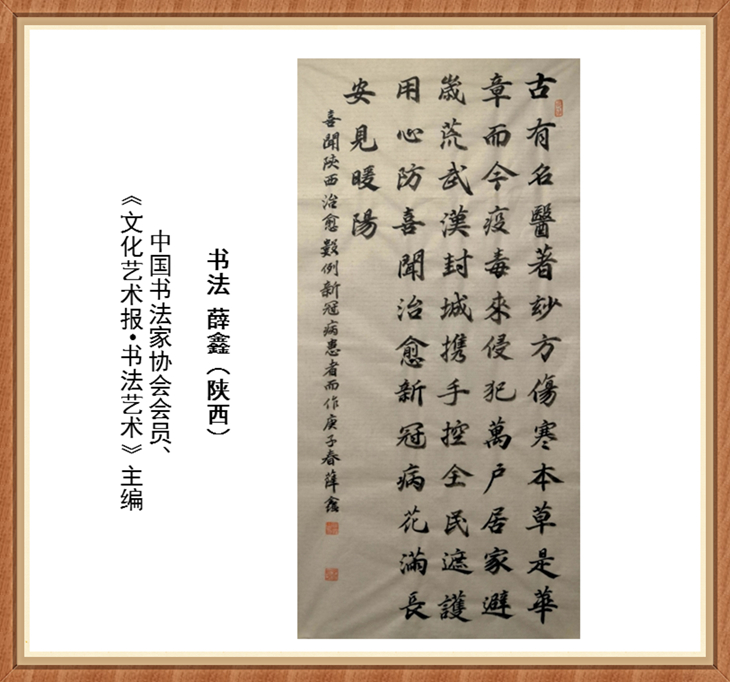 古有名醫著玅方傷寒本草是華
章而今疫毒來侵犯萬户居家避
歲荒武漢封城携手控全民遮護
用心防喜聞治愈新冠病花滿長
安見暖陽
喜聞陝西治愈數例新冠病患者而作庚子春薛鑫
书法 薛鑫（陕西）
中国书法家协会会员、
《文化艺术报•书法艺术》主编